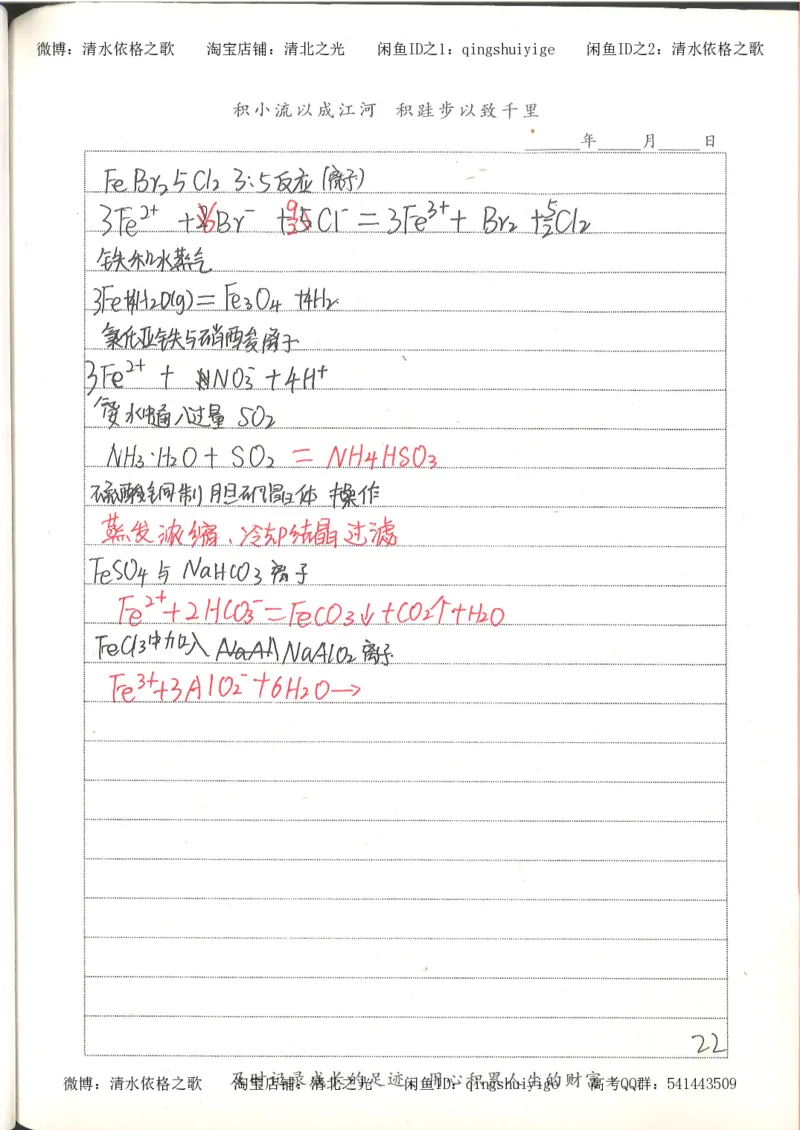 微博：清水依格之歌 淘宝店铺：清北之光 闲鱼ID之1：qingshuiyige 闲鱼ID之2：清水依格之歌
积小流以成江河 积跬步以致千里
年 月 日
FeBr2与Cl2 3:5反应(离子)
3Fe2+ + Br- + Cl- = 3Fe3+ + Br2 + 5/2Cl2
铁和水蒸气
3Fe+4H2O(g)= Fe3O4 +4H2
氯化亚铁与硝酸离子
3Fe2+ + NO3- +4H+
氨水中通入过量 SO2
NH3·H2O + SO2 = NH4HSO3
硫酸铜制胆矾晶体 操作
蒸发浓缩、冷却结晶过滤
FeSO4与 NaHCO3离子
Fe2++2HCO3-=FeCO3↓+CO2↑+H2O
FeCl3中加入 NaAlO2离子
Fe3++3AlO2-+6H2O→
22
及时记录成长的足迹 用心积累人生的财富
微博：清水依格之歌 淘宝店铺：清北之光 闲鱼ID：qingshuiyige 高考QQ群：541443509